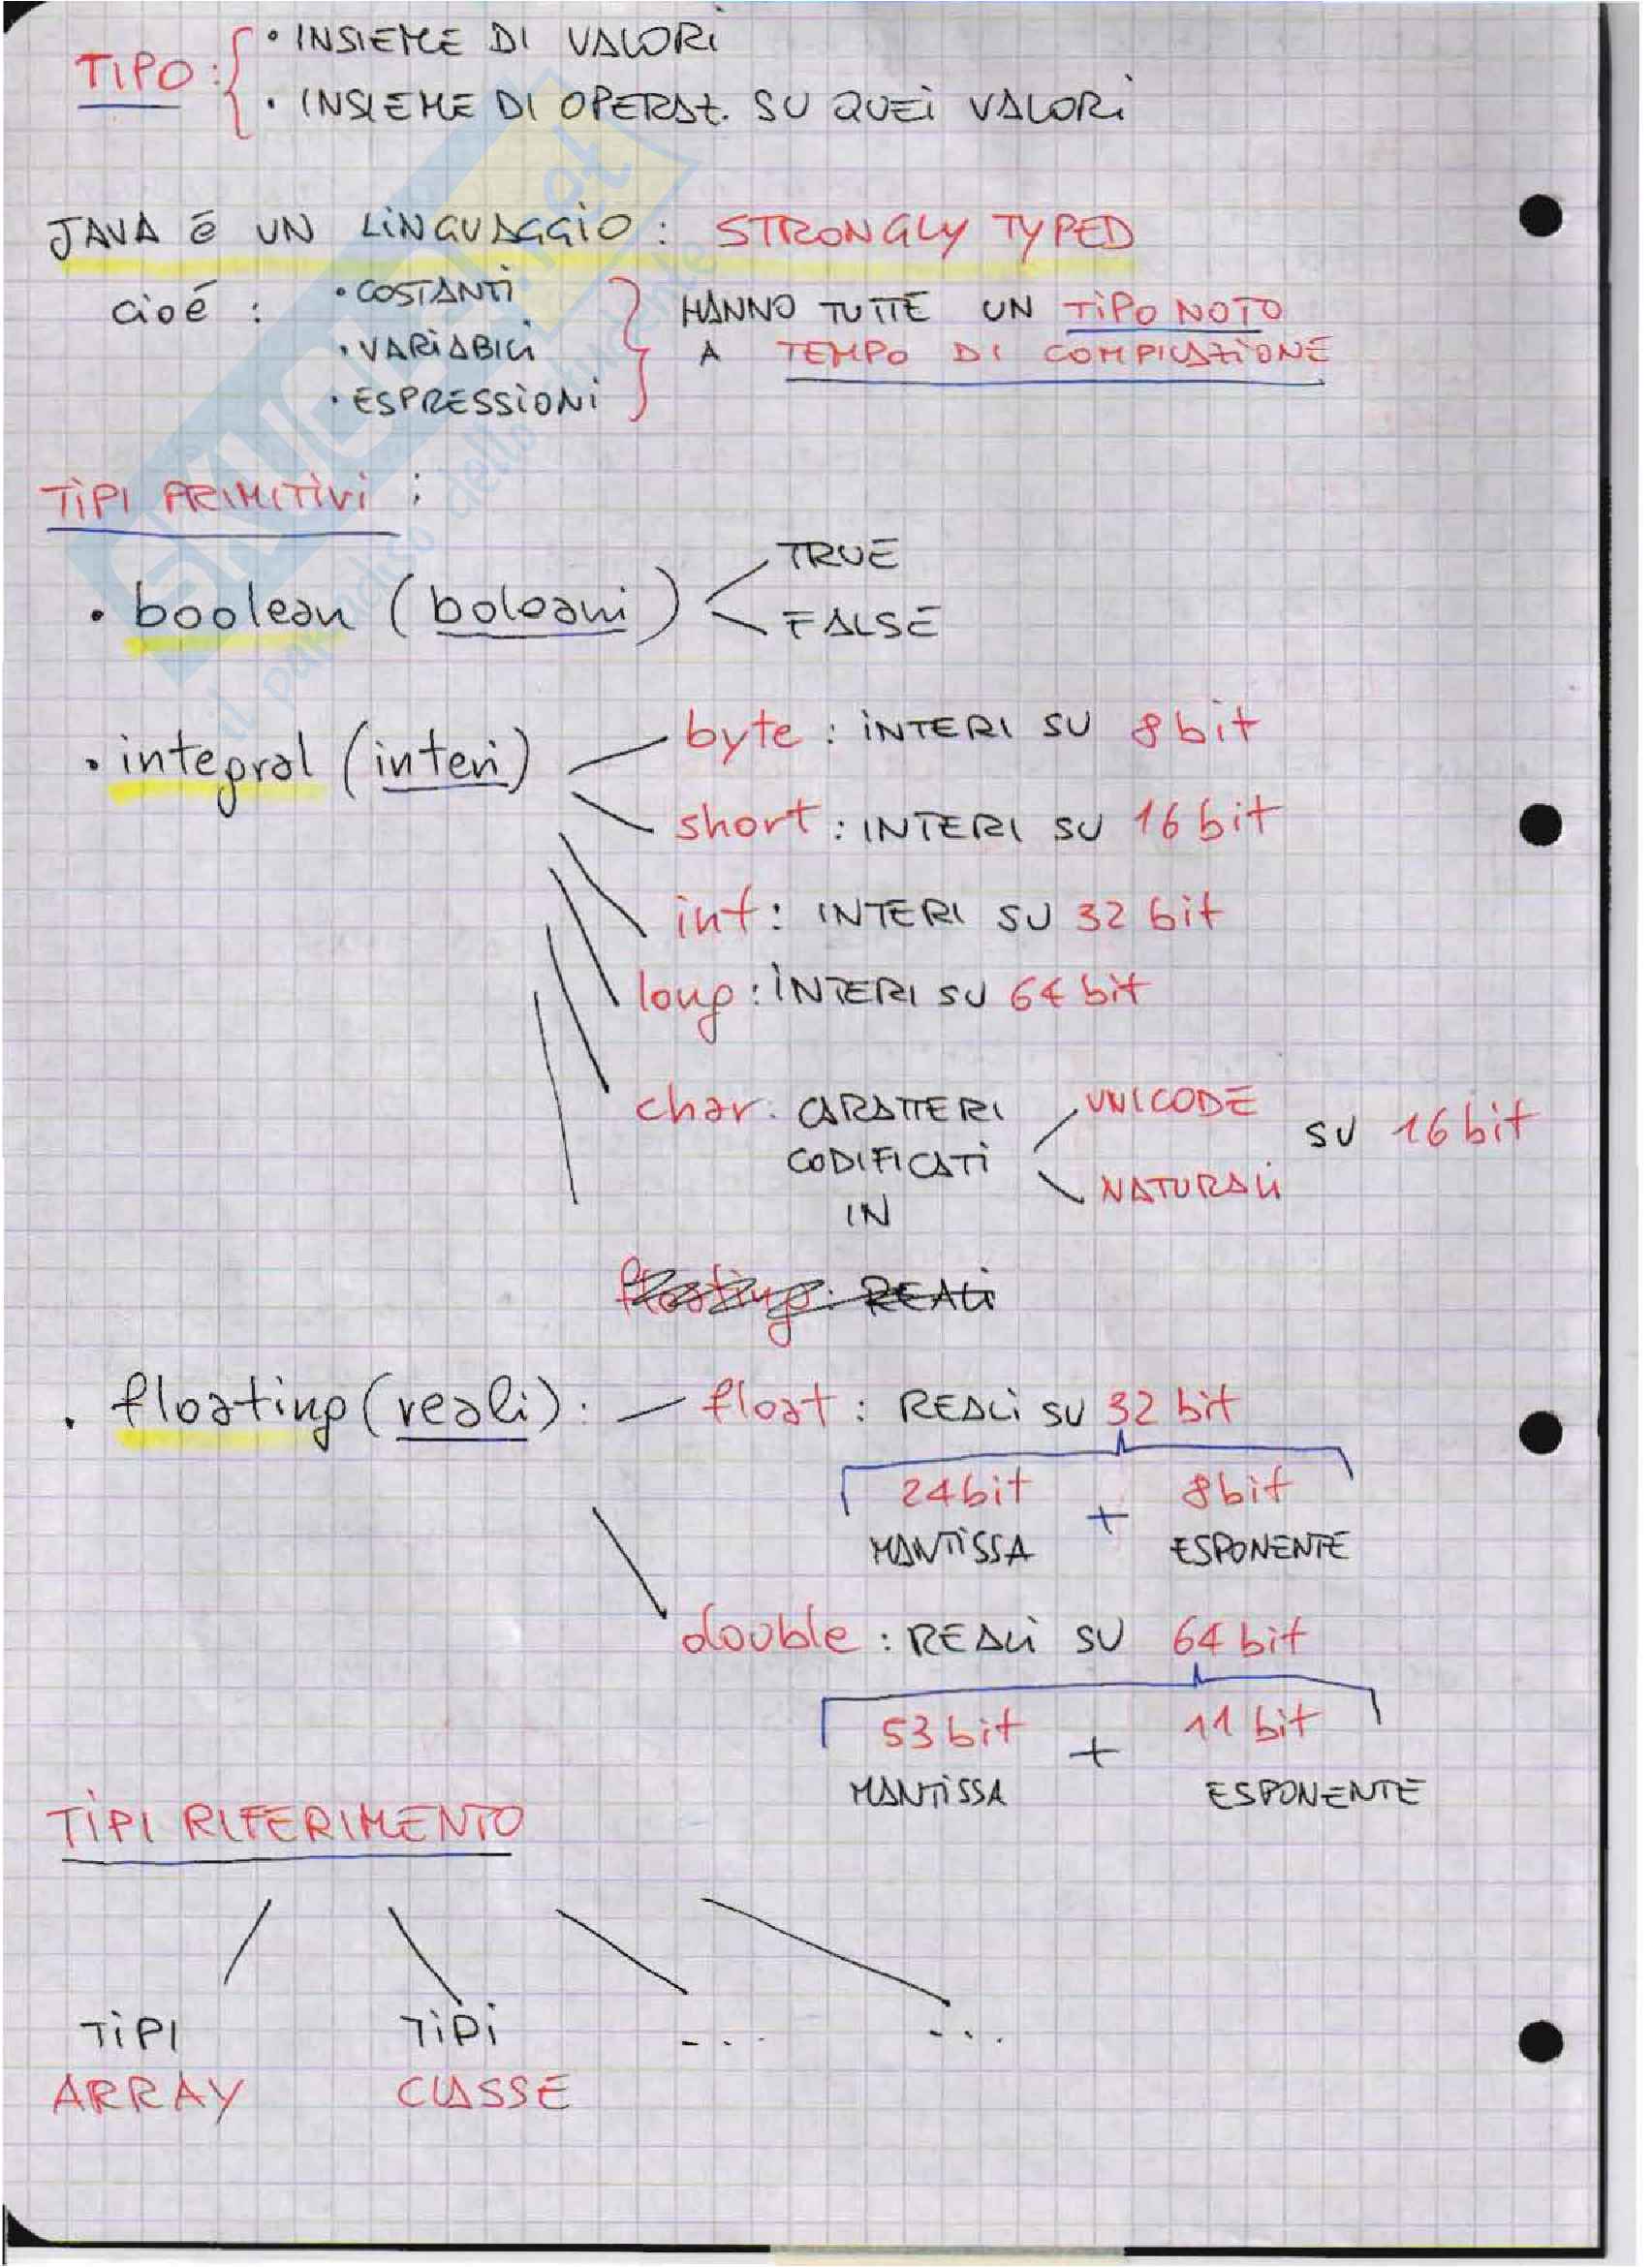 TIPO: • INSIEME DI VALORI
• INSIEME DI OPERAZ. SU QUEI VALORI
JAVA é UN LINGUAGGIO: STRONGLY TYPED
cioé : • COSTANTI
• VARIABILI
• ESPRESSIONI
HANNO TUTTE UN TIPO NOTO
A TEMPO DI COMPILAZIONE
TIPI PRIMITIVI :
• boolean (boleani) TRUE
FALSE
• integral (interi) byte : INTERI SU 8 bit
short : INTERI SU 16 bit
int : INTERI SU 32 bit
long : INTERI SU 64 bit
char : CARATTERI CODIFICATI IN UNICODE SU 16 bit
NATURALI
floating : REALI
• floating (reali) : float : REALI SU 32 bit
24 bit + 8 bit
MANTISSA ESPONENTE
double : REALI SU 64 bit
53 bit + 11 bit
MANTISSA ESPONENTE
TIPI RIFERIMENTO
TIPI TIPI ... ...
ARRAY CLASSE
SKUOLA.net
il paradiso dello studente